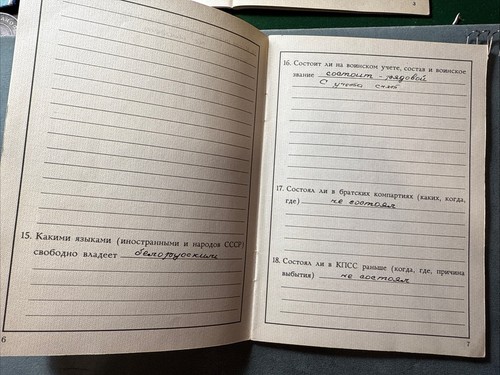 15. Какими языками (иностранными и народов СССР)
свободно владеет белорусским
6
16. Состоит ли на воинском учете, состав и воинское
звание состоит - рядовой
С учета снят
17. Состоял ли в братских компартиях (каких, когда,
где) не состоял
18. Состоял ли в КПСС раньше (когда, где, причина
выбытия) не состоял
7